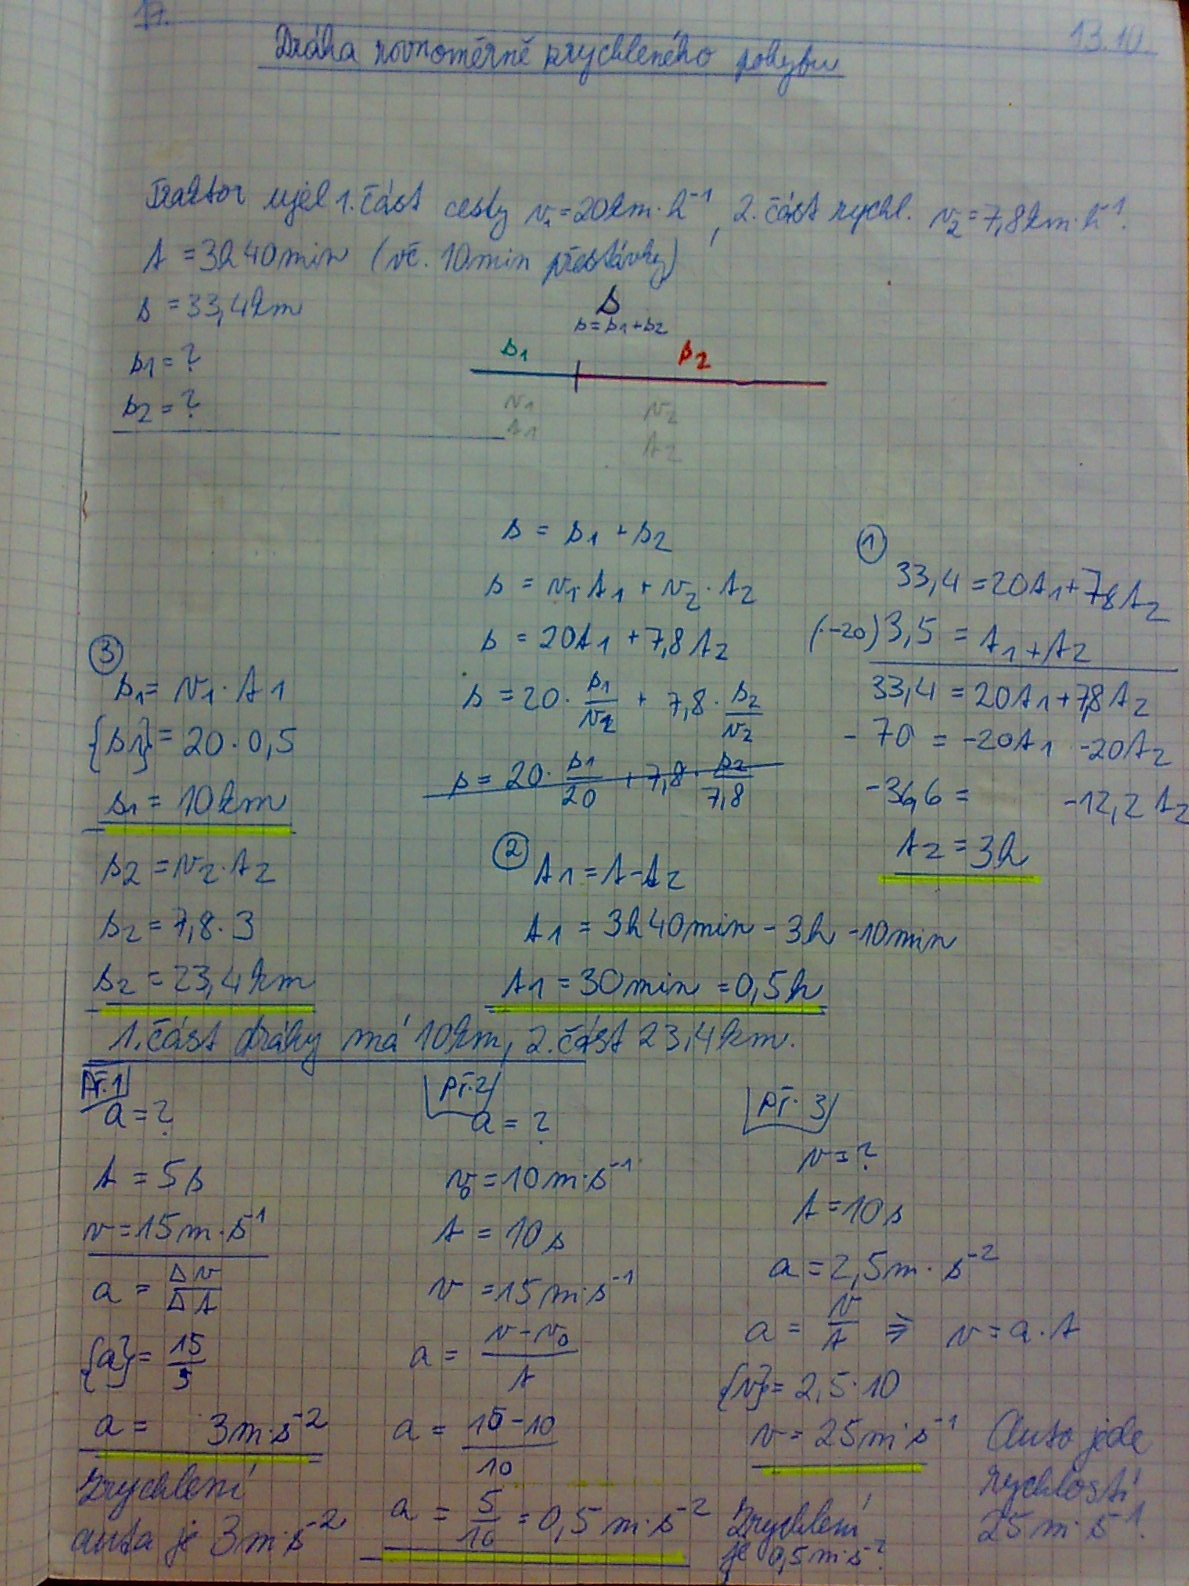 17.
13.10.
Dráha rovnoměrně zrychleného pohybu
Traktor ujel 1. část cesty v₁=20km·h⁻¹, 2. část rychl. v₂=7,8km·h⁻¹.
t = 3h40min (vč. 10min přestávky)
s = 33,4km
s₁ = ?
s₂ = ?
s
s=s₁+s₂
s₁ s₂
v₁ v₂
t₁ t₂
s = s₁ + s₂
s = v₁t₁ + v₂·t₂
s = 20t₁ + 7,8t₂
s = 20· s₁/v₁ + 7,8· s₂/v₂
s = 20· s₁/20 + 7,8· s₂/7,8
①
33,4 = 20t₁+7,8t₂
(·-20) 3,5 = t₁+t₂
33,4 = 20t₁+7,8t₂
-70 = -20t₁ -20t₂
-36,6 = -12,2t₂
t₂ = 3h
②
t₁ = t-t₂
t₁ = 3h40min - 3h - 10min
t₁ = 30min = 0,5h
③
s₁ = v₁·t₁
{s₁} = 20·0,5
s₁ = 10km
s₂ = v₂·t₂
s₂ = 7,8·3
s₂ = 23,4km
1. část dráhy má 10km, 2. část 23,4km.
Př.1
a = ?
t = 5s
v = 15m·s⁻¹
a = Δv/Δt
{a} = 15/5
a = 3m·s⁻²
Zrychlení
auta je 3m·s⁻²
Př.2
a = ?
v₀ = 10m·s⁻¹
t = 10s
v = 15m·s⁻¹
a = v-v₀/t
a = 15-10/10
a = 5/10 = 0,5m·s⁻²
Zrychlení
je 0,5m·s⁻²
Př. 3
v = ?
t = 10s
a = 2,5m·s⁻²
a = v/t ⇒ v = a·t
{v} = 2,5·10
v = 25m·s⁻¹
Auto jede
rychlostí
25m·s⁻¹.